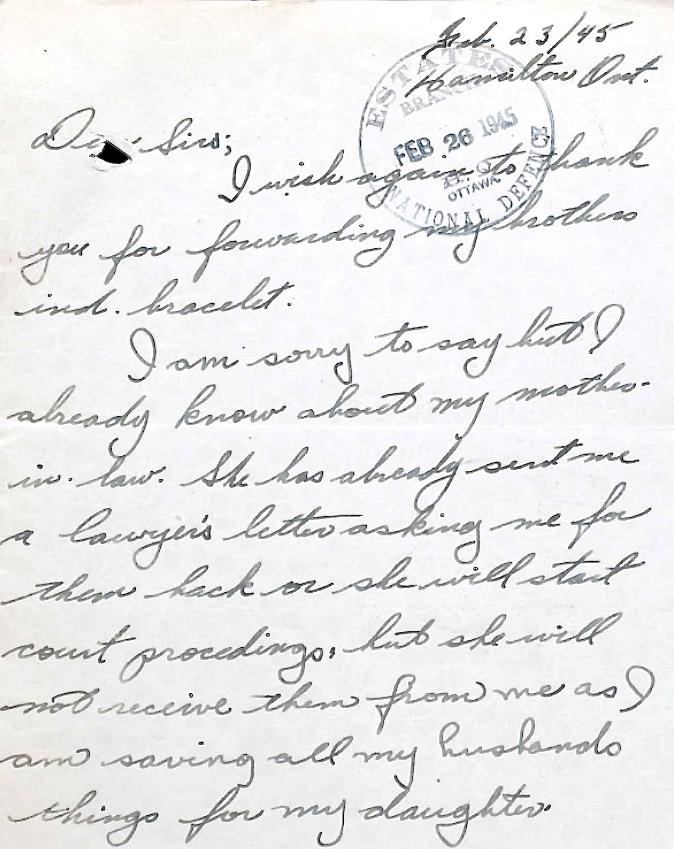 Feb. 23/45
Hamilton Ont.
ESTATES
BRANCH
FEB 26 1945
OTTAWA
NATIONAL DEFENCE
Dear Sirs;
I wish again to thank
you for forwarding my brothers
ind. bracelet.
I am sorry to say but I
already know about my mother-
in-law. She has already sent me
a lawyer's letter asking me for
them back or she will start
court procedings, but she will
not receive them from me as I
am saving all my husbands
things for my daughter.